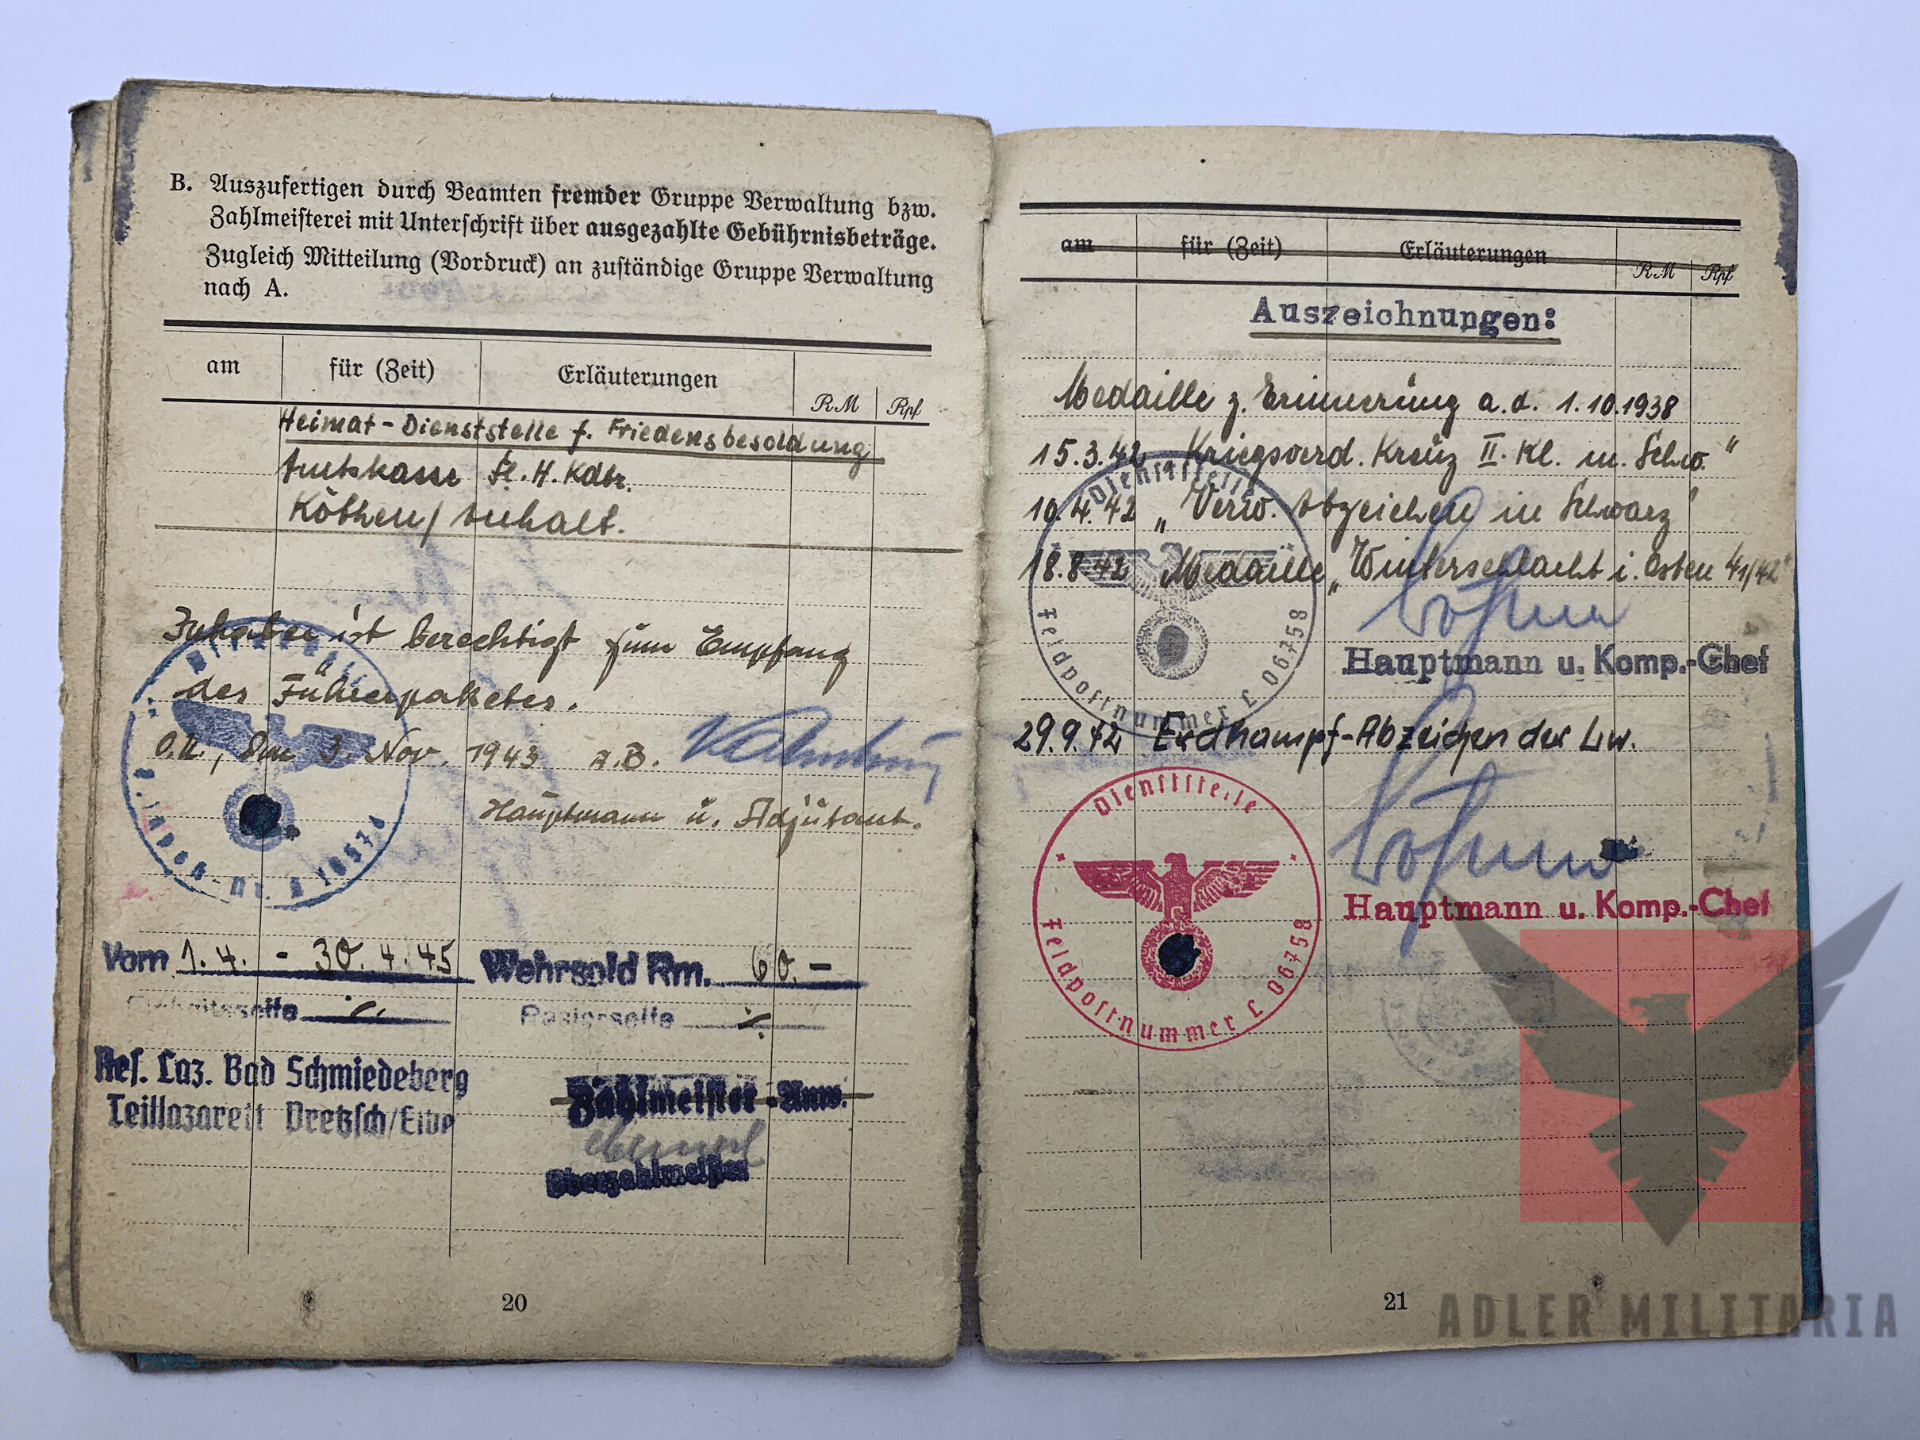 B. Auszufertigen durch Beamten fremder Gruppe Verwaltung bzw.
Zahlmeisterei mit Unterschrift über ausgezahlte Gebührnisbeträge.
Zugleich Mitteilung (Vordruck) an zuständige Gruppe Verwaltung
nach A.
am für (Zeit) Erläuterungen RM Rpf
Heimat-Dienststelle f. Friedensbesoldung
Amtskasse Fl. H. Kdtr.
Köthen/Anhalt.
Inhaber ist berechtigt zum Empfang
des Führerpaketes.
O.U., den 3. Nov. 1943 A.B.
Hauptmann u. Adjutant.
Vom 1.4. - 30.4.45 Wehrsold Rm. 60.-
Einheitsseife Rasierseife
Res. Laz. Bad Schmiedeberg
Teillazarett Pretzsch/Elbe
Zahlmeister-Anw.
Oberzahlmeister
20
am für (Zeit) Erläuterungen RM Rpf
Auszeichnungen:
Medaille z. Erinnerung a.d. 1.10.1938
15.3.42 Kriegsverd. Kreuz II. Kl. m. Schw."
10.4.42 „Verw. Abzeichen in Schwarz"
18.8.42 Medaille „Winterschlacht i. Osten 41/42"
Dienststelle
Feldpostnummer L 06758
Hauptmann u. Komp.-Chef
29.9.42 Erdkampf-Abzeichen der Lw.
Dienststelle
Feldpostnummer L 06758
Hauptmann u. Komp.-Chef
21
ADLER MILITARIA